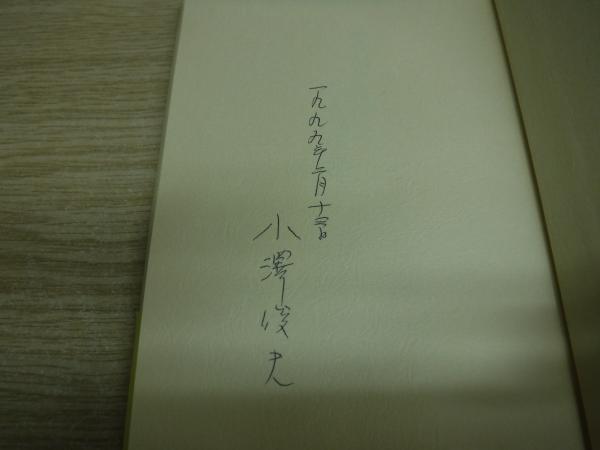 一九九九年二月十三日
小澤俊夫